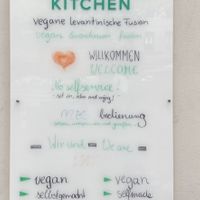 KITCHEN
vegane Levantinische Fusion
vegan levantinian fusion
WILLKOMMEN
WELCOME
No selfservice!
sit in, relax and enjoy!
bedienung
Wir sind We are
vegan vegan
selbstgemacht selfmade